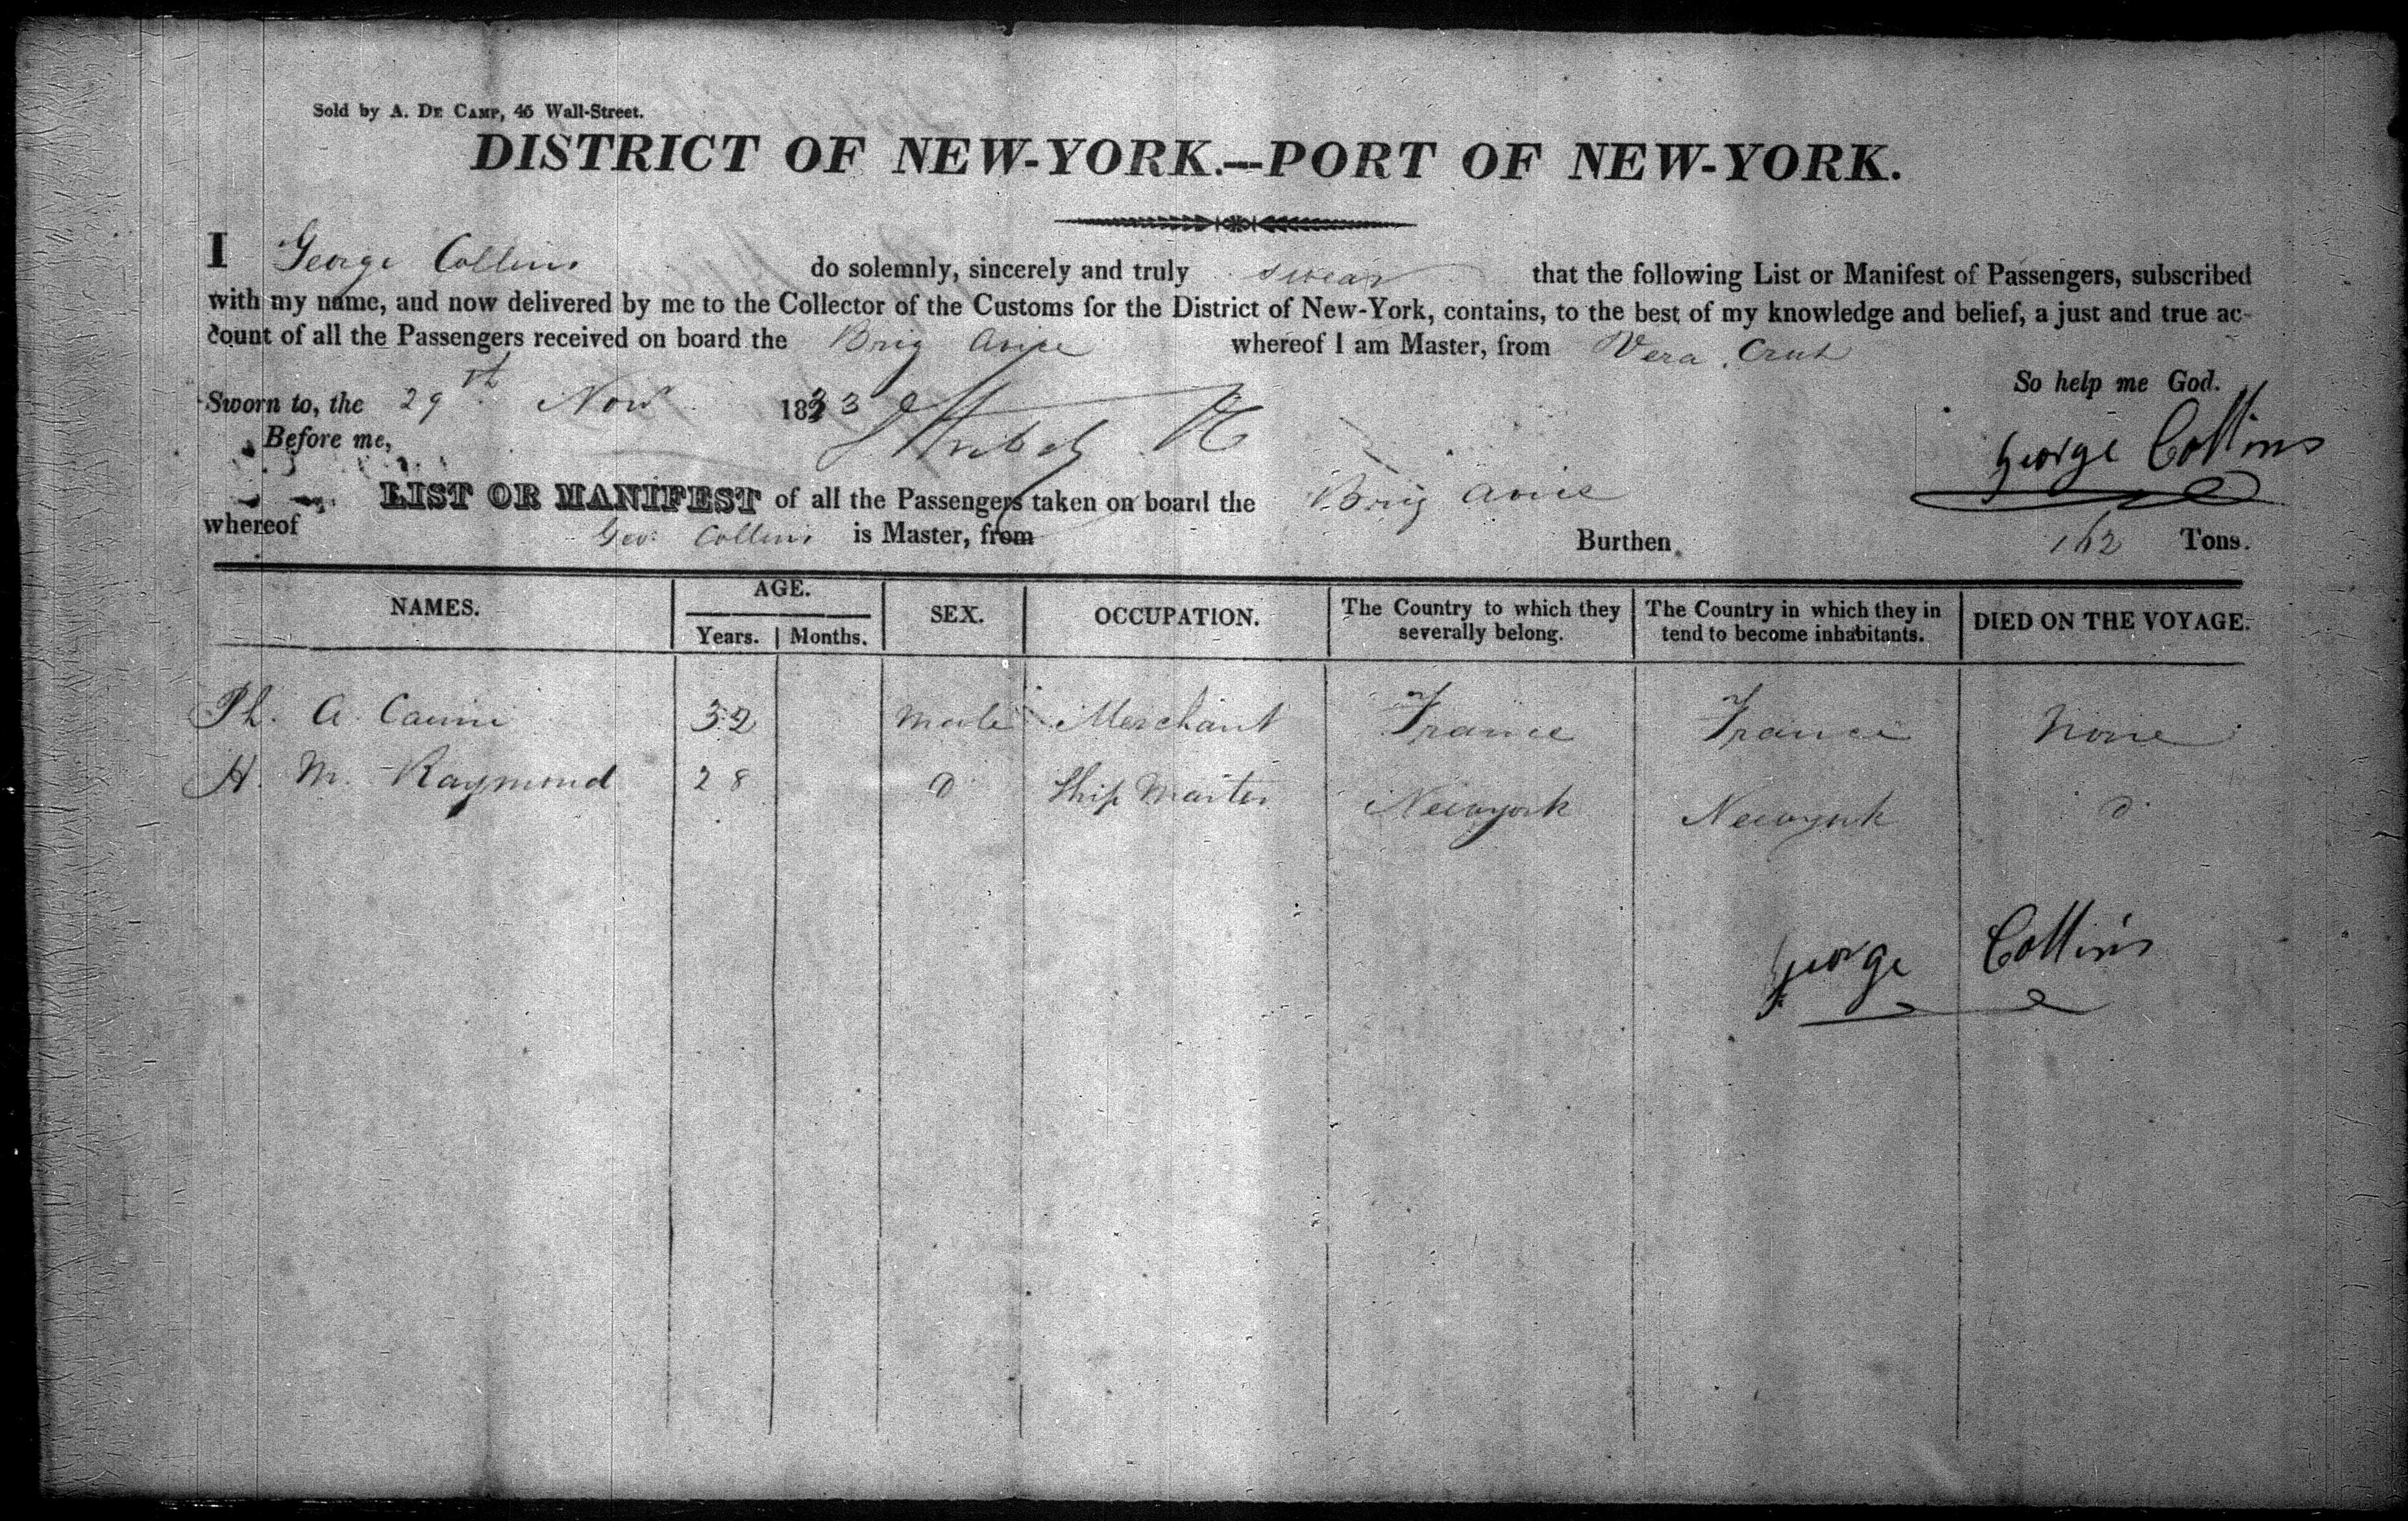 Sold by A. DE CAMP, 45 Wall-Street.
DISTRICT OF NEW-YORK.—PORT OF NEW-YORK.
I George Collins do solemnly, sincerely and truly swear that the following List or Manifest of Passengers, subscribed
with my name, and now delivered by me to the Collector of the Customs for the District of New-York, contains, to the best of my knowledge and belief, a just and true ac-
count of all the Passengers received on board the Brig whereof I am Master, from Vera Cruz
So help me God.
Sworn to, the 29th Nov 1833
Before me,
George Collins
LIST OR MANIFEST of all the Passengers taken on board the Brig
whereof Geo: Collins is Master, from Burthen 162 Tons.
NAMES. AGE. SEX. OCCUPATION. The Country to which they severally belong. The Country in which they in tend to become inhabitants. DIED ON THE VOYAGE.
Years. Months.
Ph. A. male Merchant France France None
H. M. Raymond 28 d Ship Master Newyork Newyork d
George Collins